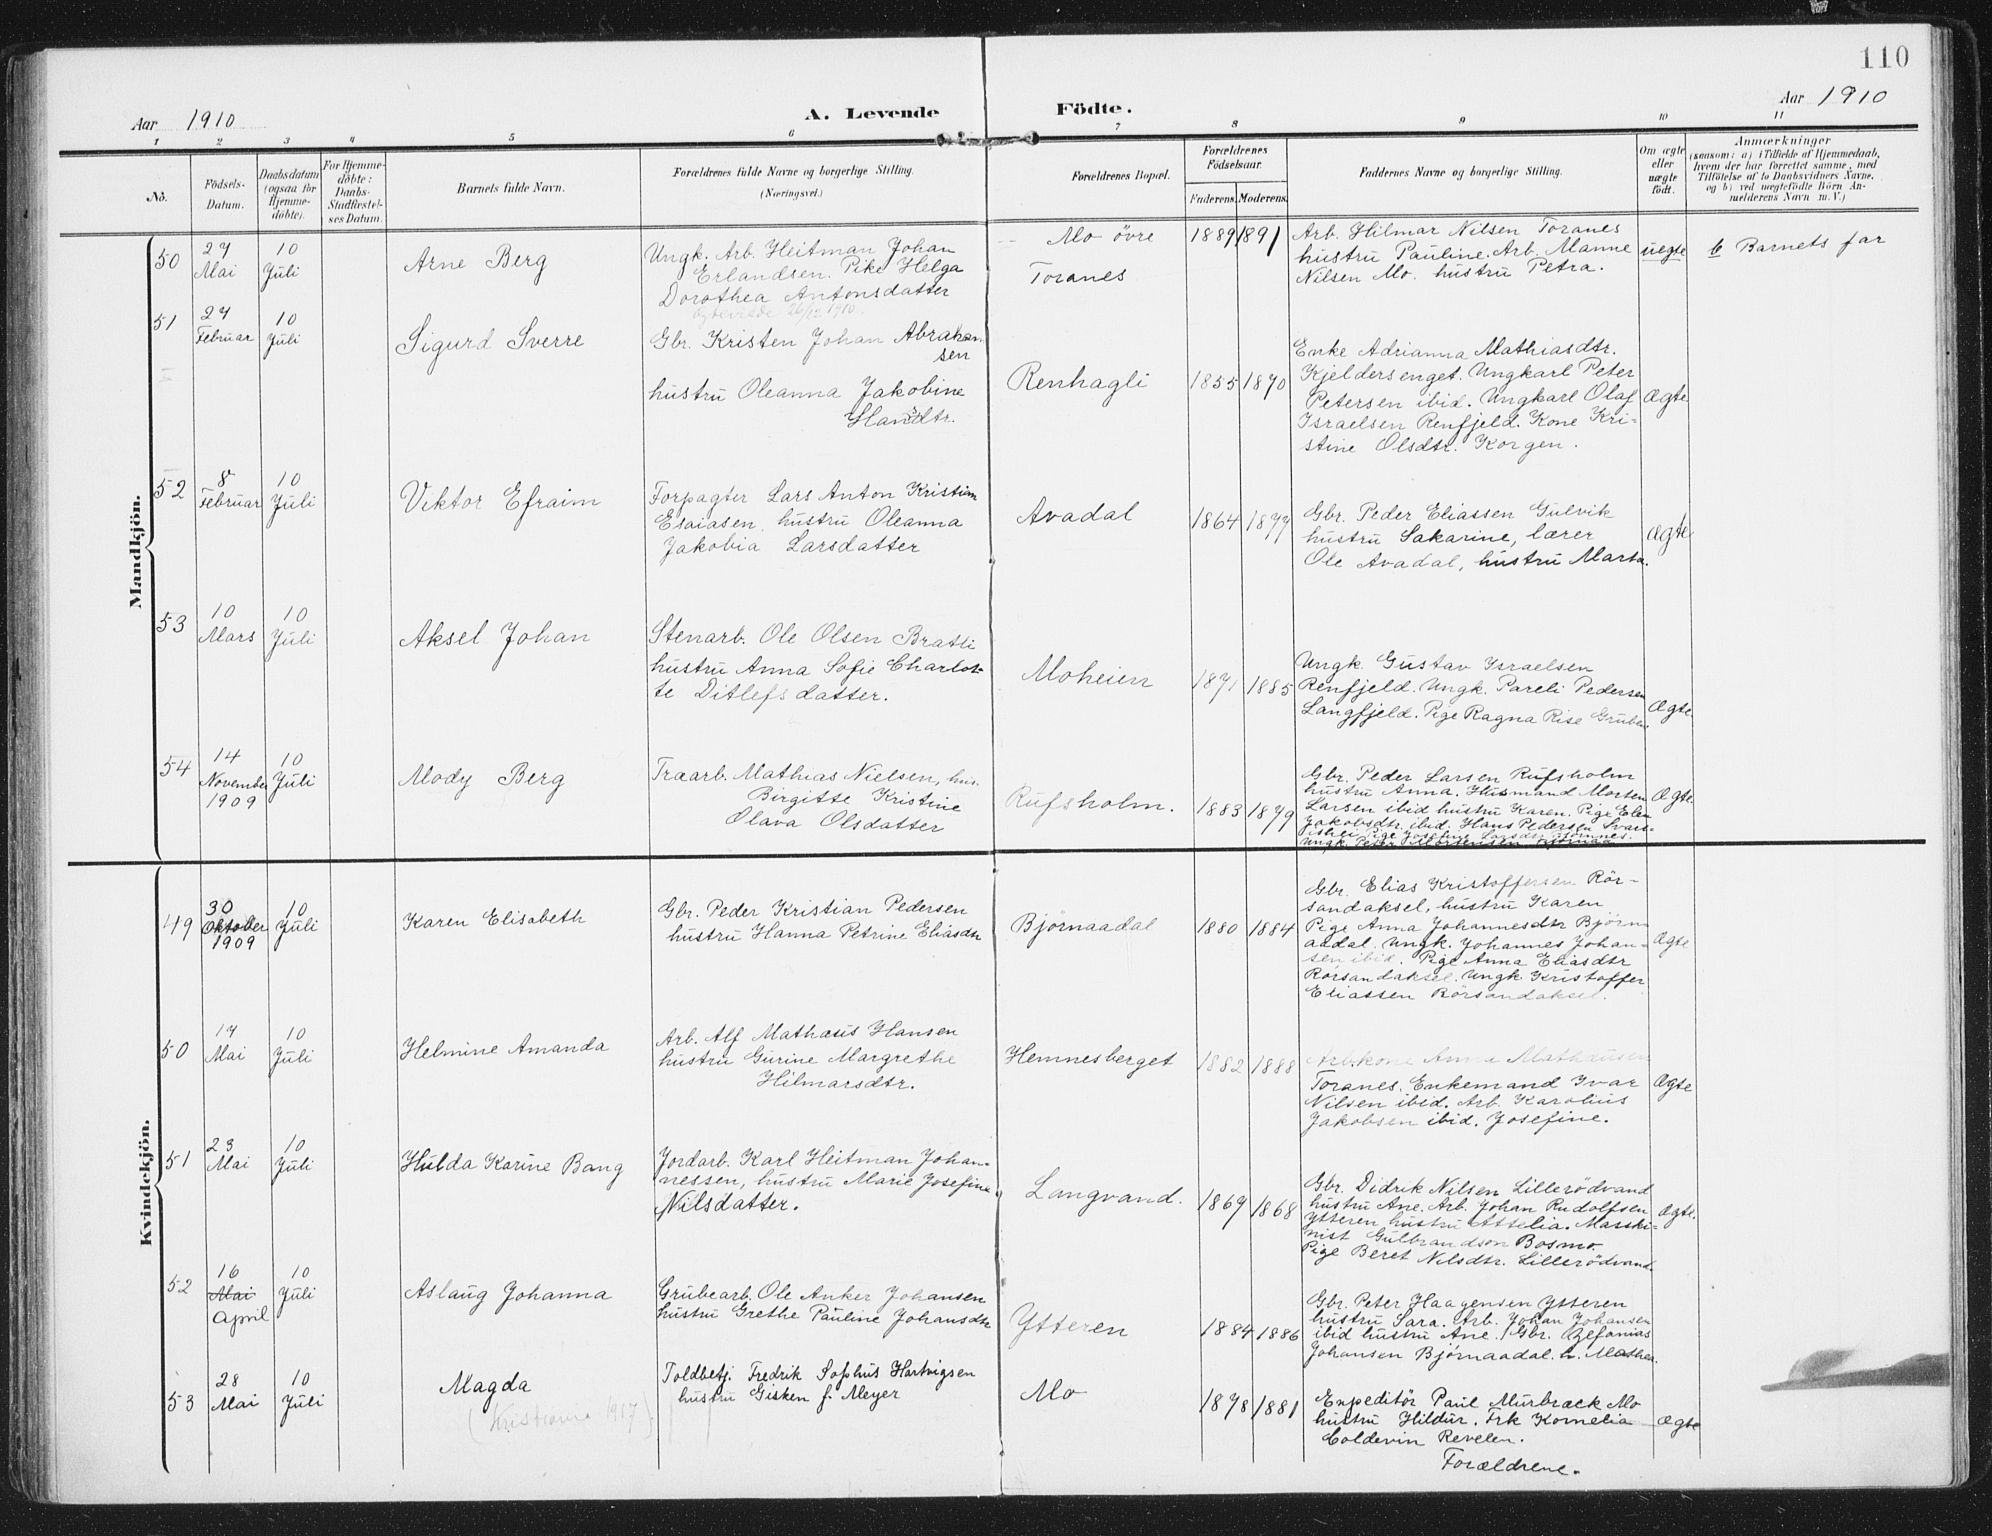 110
Aar 1910
A. Levende Födte.
Aar 1910
1 2 3 4 5 6 7 8 9 10 11
No.
Födsels-
Datum.
Daabsdatum
(ogsaa for
Hjemme-
döbte).
For Hjemme-
döbte:
Daabs-
Stadfæstel-
ses Datum.
Barnets fulde Navn.
Forældrenes fulde Navne og borgerlige Stilling.
(Næringsvei.)
Forældrenes Bopæl.
Forældrenes
Födselsaar.
Faderens. Moderens.
Faddernes Navne og borgerlige Stilling.
Om ægte
eller
uægte
födt.
Anmærkninger
(saasom: a) i Tilfælde af Hjemmedaab,
hvem der har forrettet samme, med
Tilföielse af to Daabsvidners Navne.
og b) ved uægtefödte Börn An-
melderens Navn m. V.)
Mandkjön.
50
27
Mai
10
Juli
Arne Berg
Ungk. Arb. Heitman Johan
Erlandsen. Pike Helga
Dorothea Antonsdatter
26/12 1910.
Mo övre
Toranes
1889 1891
Arb. Hilmar Nilsen Toranes
hustru Pauline. Arb. Manne
Nilsen Mo. hustru Petra.
uegte
b Barnets far
51
27
Februar
10
Juli
Sigurd Sverre
Gbr. Kristen Johan Abraham
sen
hustru Oleanna Jakobine
Hansdtr.
Renhagli
1855 1870
Enke Adrianna Mathiasdtr.
Kjeldersenget. Ungkarl Peter
Petersen ibid. Ungkarl Olaf
Israelsen Renfjeld. Kone Kri-
stine Olsdtr. Korgen.
Ægte
52
8
Februar
10
Juli
Viktor Efraim
Forpagter Lars Anton Kristian
Esaiasen, hustru Oleanna
Jakobia Larsdatter
Avadal
1864 1877
Gbr. Peder Eliassen Gulvik
hustru Sakarine, lærer
Ole Avadal, hustru Marta.
Ægte
53
10
Mars
10
Juli
Aksel Johan
Stenarb. Ole Olsen Bratli
hustru Anna Sofie Charlot-
te Ditlefsdatter.
Moheien
1871 1885
Ungk. Gustav Israelsen
Renfjeld. Ungk. Pareli Pedersen
Langfjeld. Pige Ragna Rise Gruben
Ægte.
54
14
November
1909
10
Juli
Mody Berg
Træarb. Mathias Nielsen, hus.
Birgitte Kristine
Olava Olsdatter
Rufsholm.
1883 1879
Gbr. Peder Larsen Rufsholm
hustru Anna. Husmand Morten
Larsen ibid hustru Karen. Pige Elen
Jakobsdtr. ibid. Hans Pedersen Svart-
Pige Josefine Larsdtr
Ungk. Peter Mortensen
Ægte
Kvindekjön.
49
30
Oktober
1909
10
Juli
Karen Elisabeth
Gbr. Peder Kristian Pedersen
hustru Hanna Petrine Eliasdtr
Björnaadal
1880 1884
Gbr. Elias Kristoffersen Rör-
sandaksel, hustru Karen
Pige Anna Johannesdtr Björn-
aadal. Ungk. Johannes Johan-
sen ibid. Pige Anna Eliasdtr
Rörsandaksel. Ungk. Kristoffer
Eliassen Rörsandaksel.
Ægte
50
17
Mai
10
Juli
Helmine Amanda
Arb. Alf Mathæus Hansen
hustru Gurine Margrethe
Hilmarsdtr.
Hemnesberget
1882 1888
Arb.kone Anna Mathæusen
Toranes. Enkemand Ivar
Nilsen ibid. Arb. Karolius
Jakobsen ibid. Josefine.
Ægte
51
23
Mai
10
Juli
Hulda Karine Bang
Jordarb. Karl Heitman Johan-
nessen, hustru Marie Josefine
Nilsdatter.
Langvand.
1869 1868
Gbr. Didrik Nilsen Lillerödvand
hustru Ane. Arb. Johan Rudolfsen
Ytteren hustru Attelia. Maski-
nist Gulbrandson Bosmo.
Pige Beret Nilsdtr. Lillerödvand.
Ægte.
52
16
Mai
April
10
Juli
Aslaug Johanna
Grubearb. Ole Anker Johansen
hustru Grethe Pauline Johansdtr
Ytteren
1884 1886
Gbr. Peter Haagensen Ytteren
hustru Sara. Arb. Johan Johansen
ibid hustru Ane. Gbr. Zefanias
Johansen Björnaadal. h. Mathea.
53
28
Mai
10
Juli
Magda
(Kristiania 1917)
Toldbetj. Fredrik Sophus Hartvigsen
hustru Gisken f. Meyer
Mo
1878 1881
Expeditör Paul Murbræck Mo
hustru Hildur. Frk Kornelia
Coldevin Revelen.
Forældrene.
Ægte